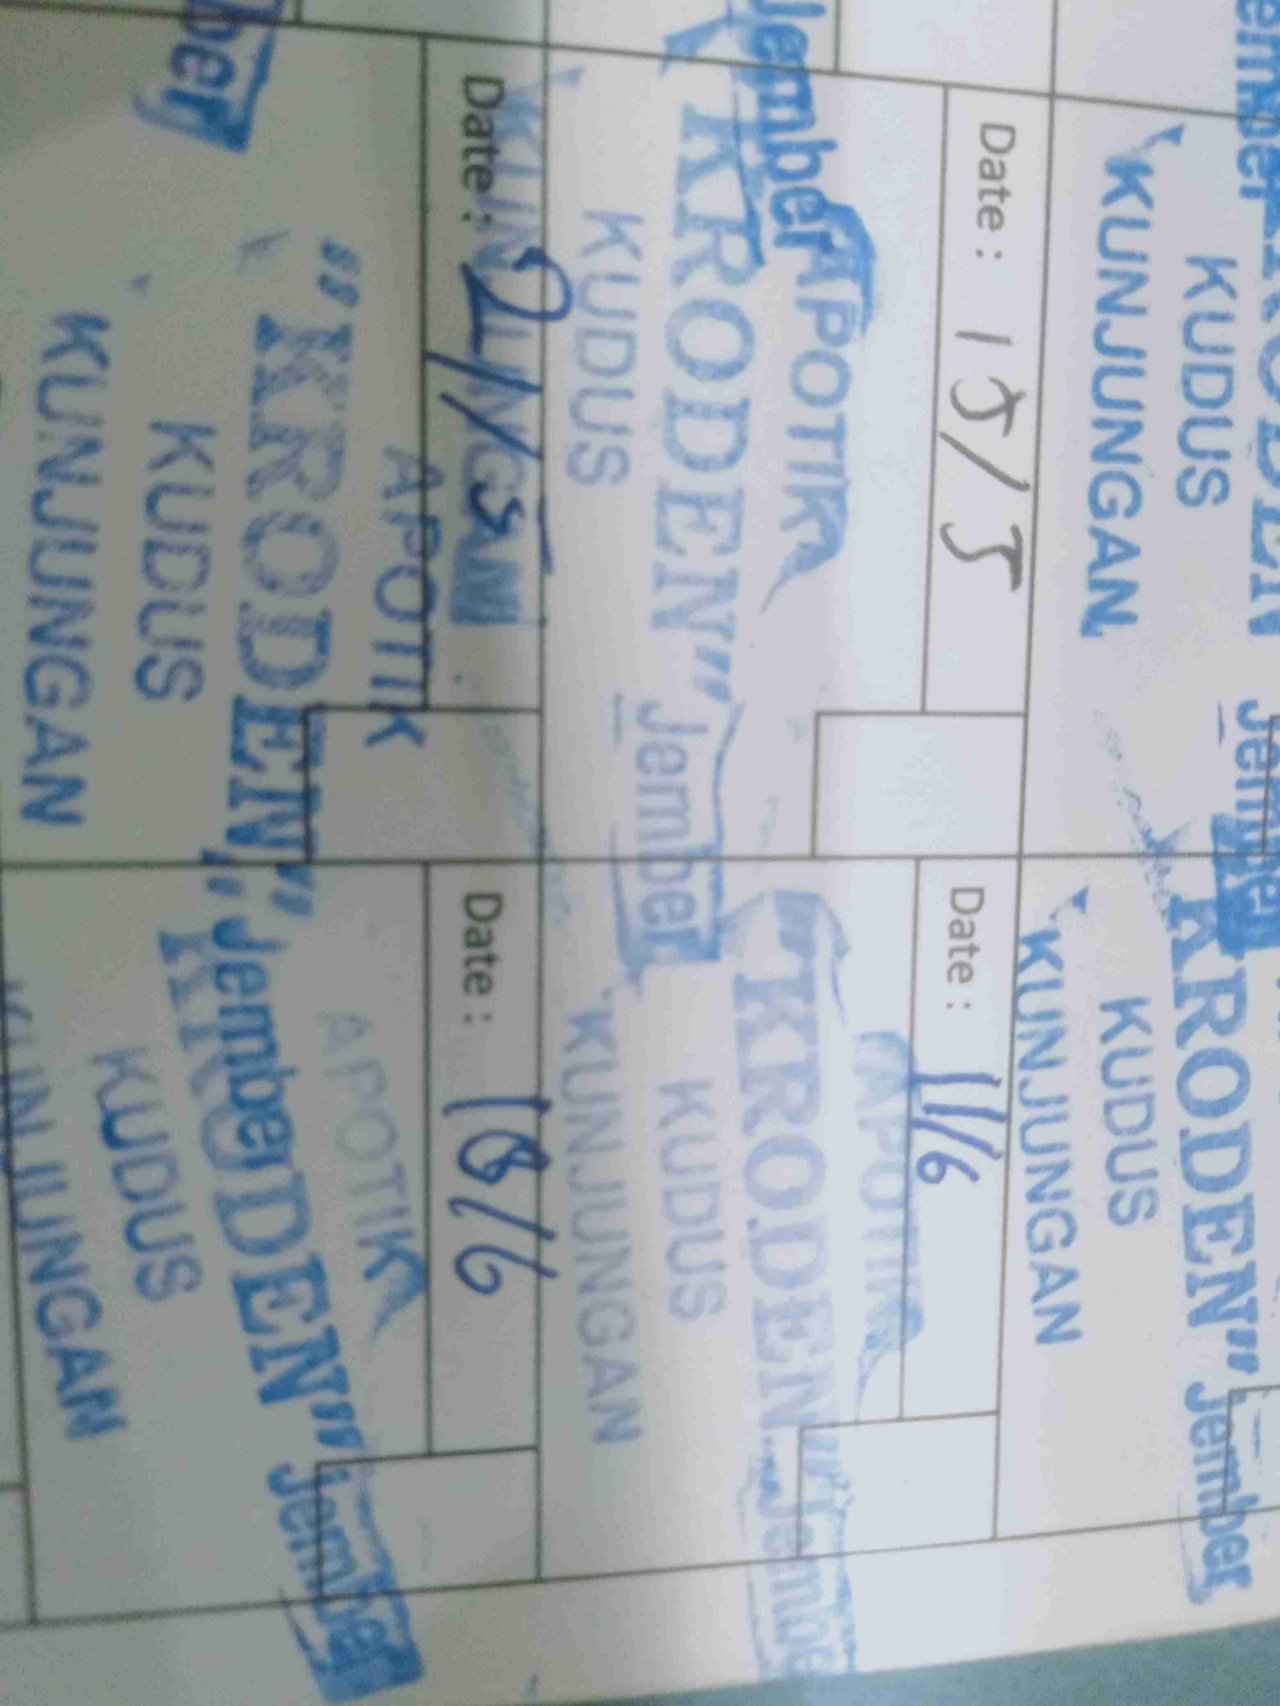 KUDUS
KUNJUNGAN
Jember
KRODEN" Jember
KUDUS
KUNJUNGAN
Date : 15/5
Jember
APOTIK
"KRODEN" Jember
KUDUS
KUNJUNGAN
Date : 11/6
APOTIK
"KRODEN" Jember
KUDUS
KUNJUNGAN
Date : 21/5
APOTIK
"KRODEN" Jember
KUDUS
KUNJUNGAN
Date : 18/6
APOTIK
KRODEN" Jember
KUDUS
KUNJUNGAN